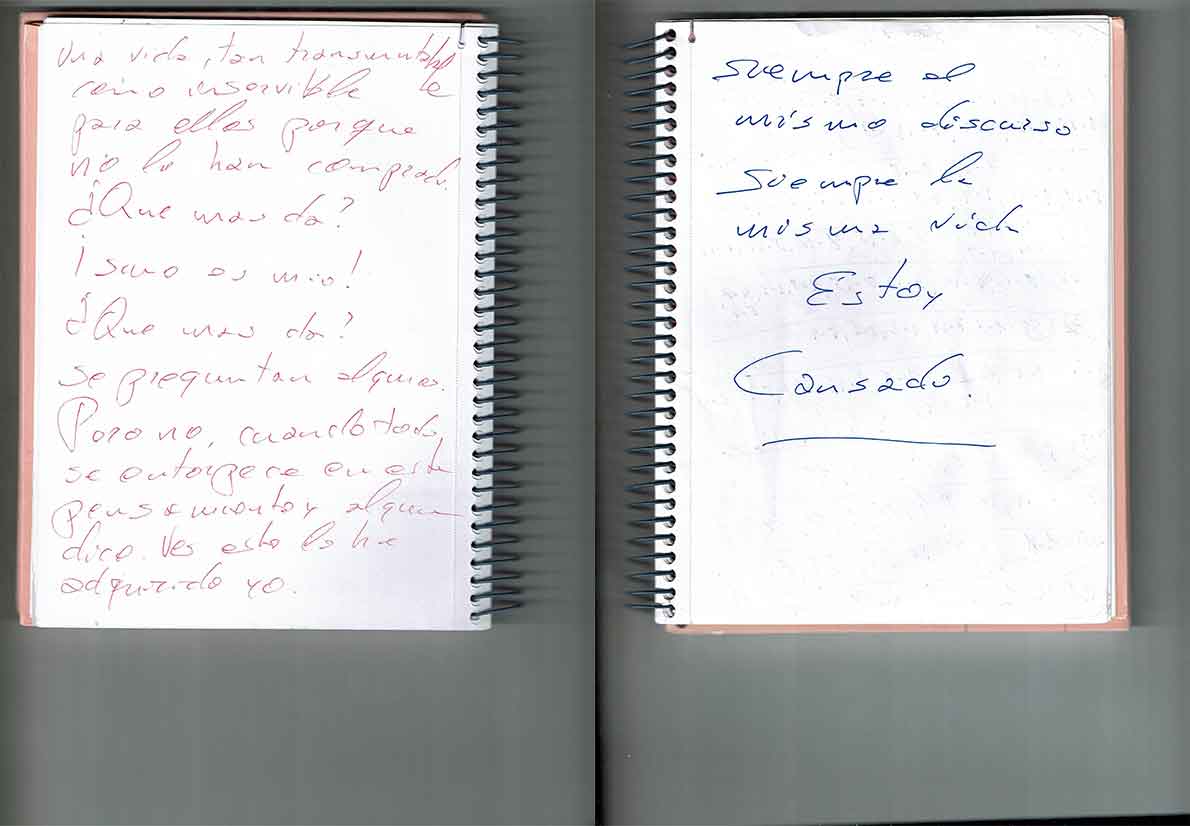 una vida, tan transmutable
como inservible
para ellos porque
no la han comprado.
¿Que mas da?
¡Si no es mio!
¿Que mas da?
se preguntan algunos.
Pero no, cuando todo
se entorpece en este
pensamiento y alguien
dice. Ves esto lo he
adquirido yo.
Siempre el
mismo discurso
Siempre la
misma vida
Estoy
Cansado.